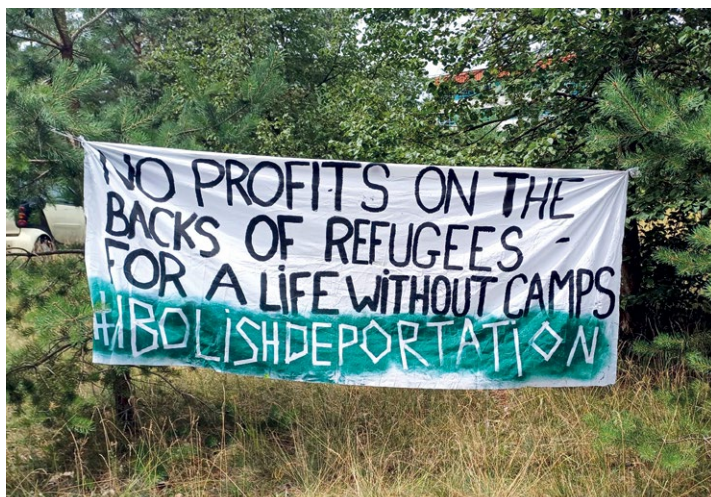 NO PROFITS ON THE
BACKS OF REFUGEES -
FOR A LiFE WiTHOUT CAMPS
#ABOLiSHDEPORTATiON